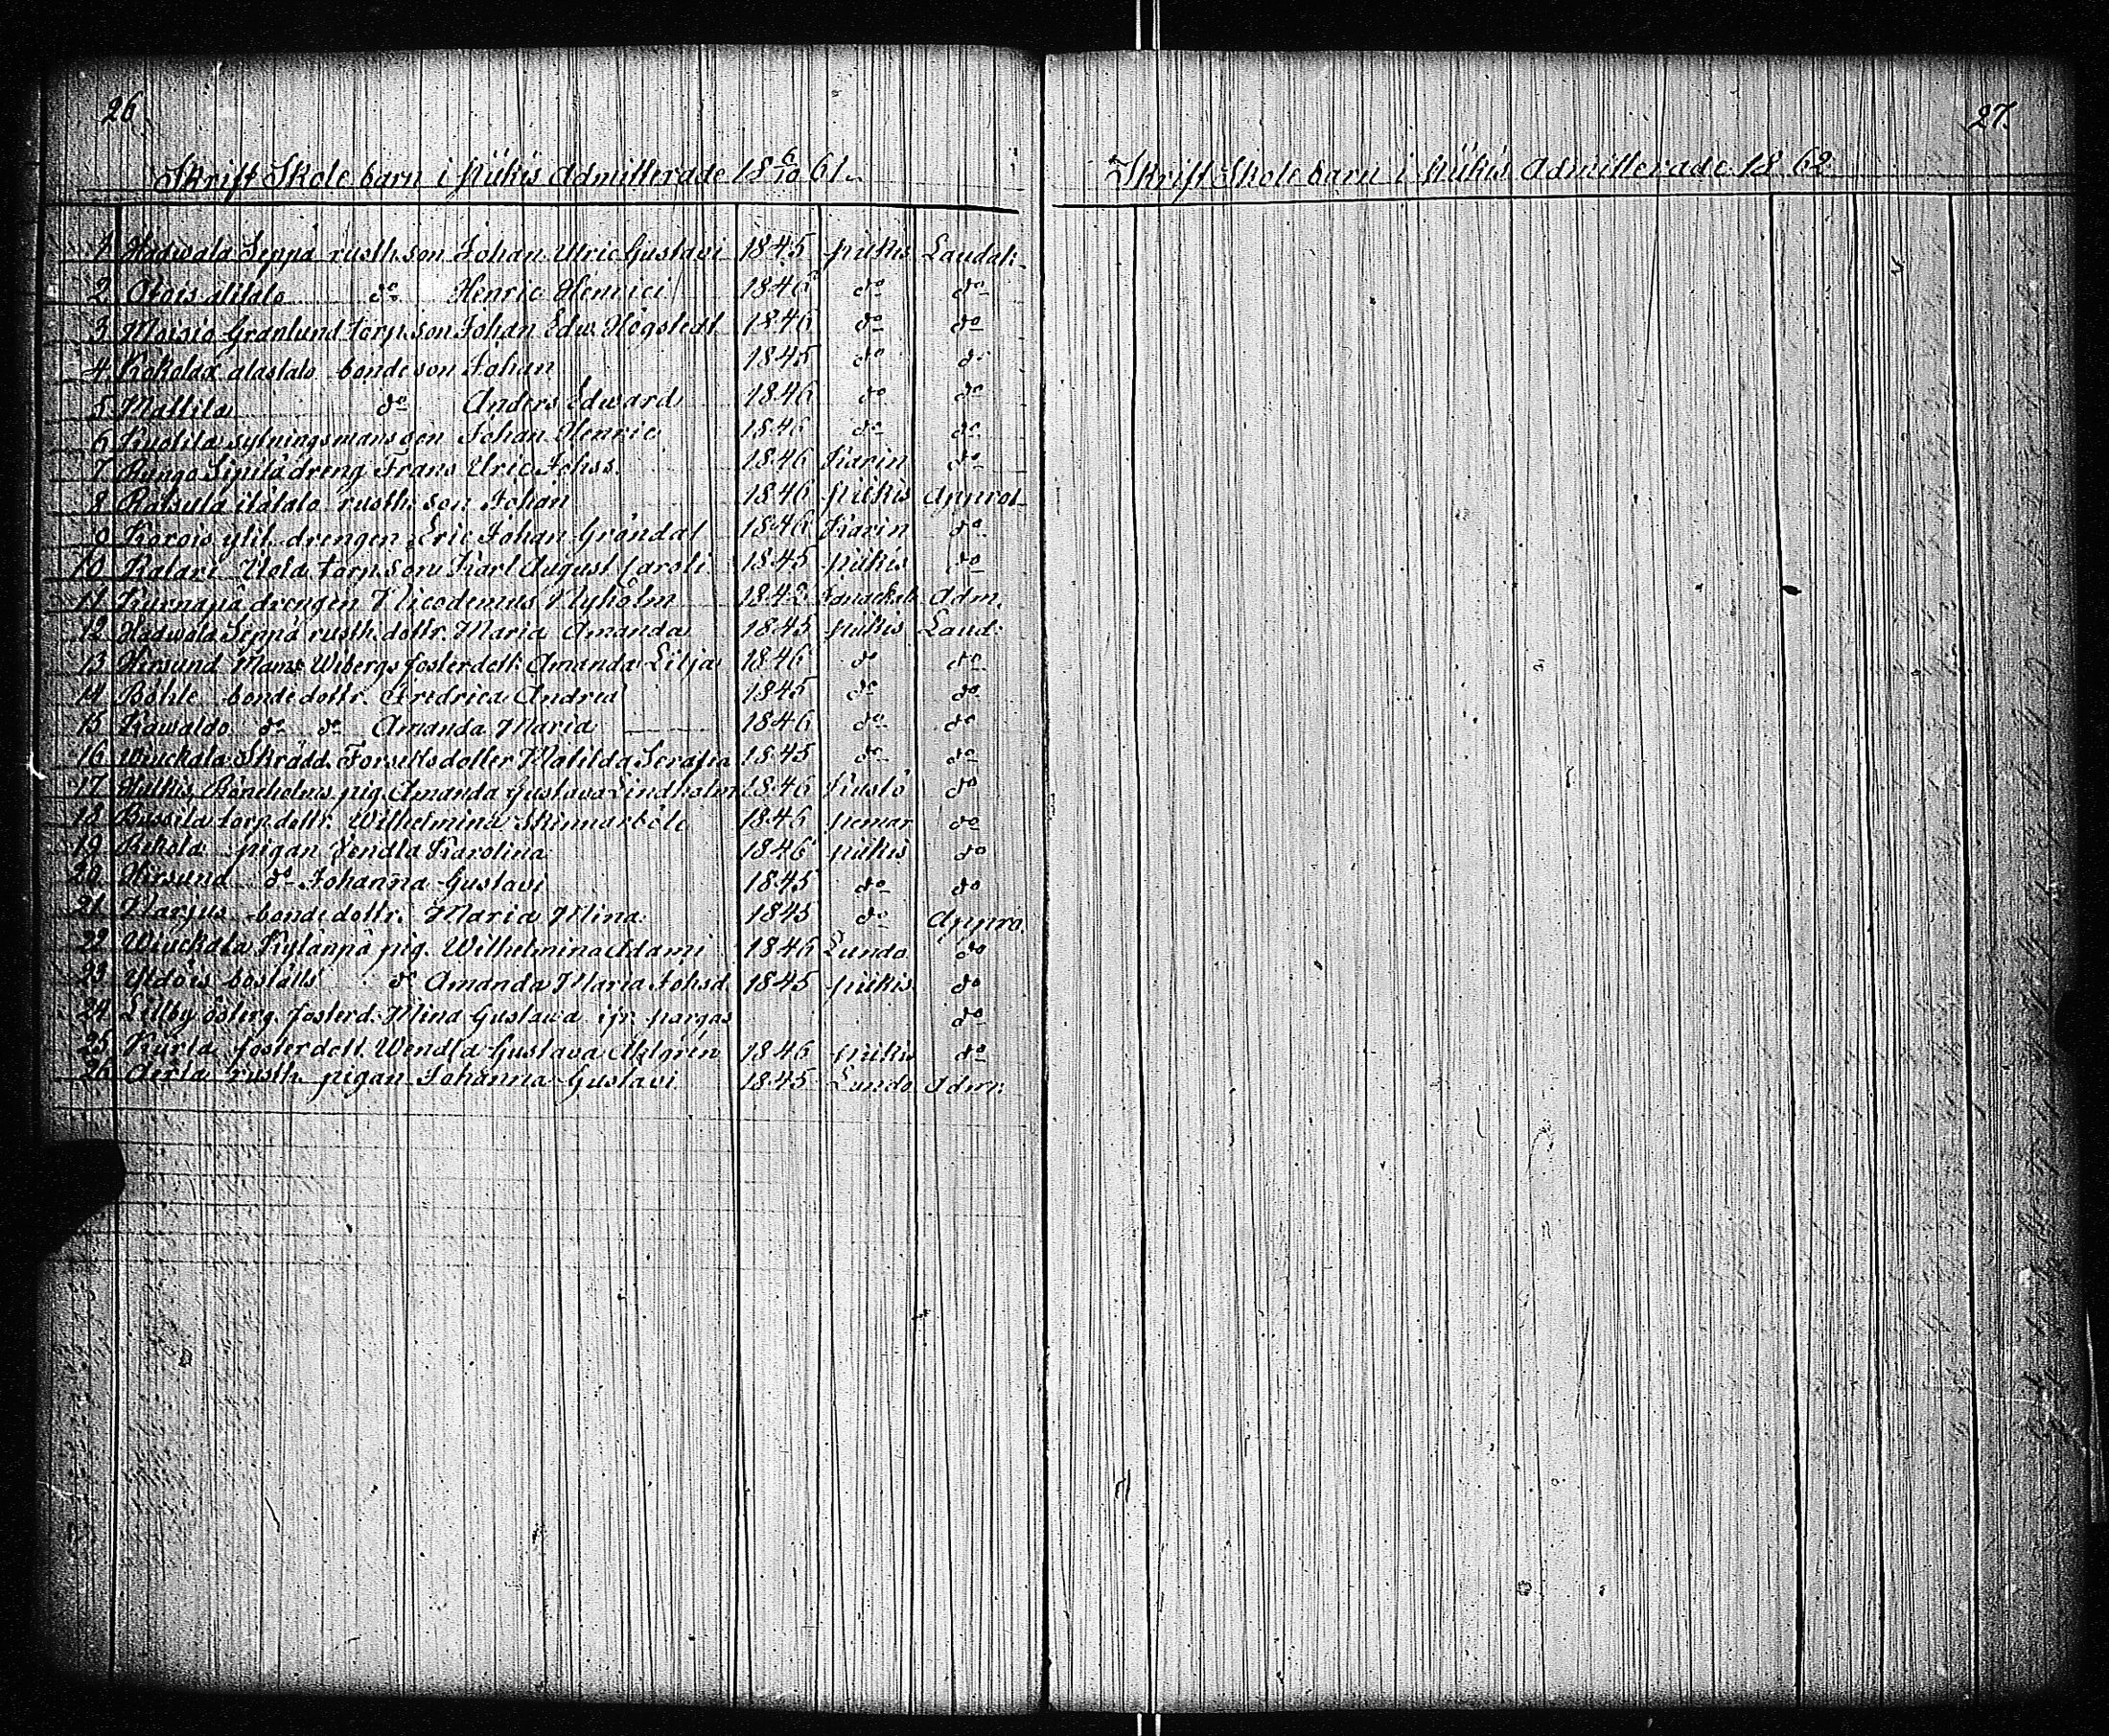 26.
Skrift Skole barn i Piikis Admitterade 18 6/10 61.
1 Hadwala Seppä rusth. son Johan Ulric Gustavi 1845 Piikis Laudab.
2 Otois alitalo do Henric Henrici 1846 do do
3 Moisio Granlund torp. son Johan Edw. Högstedt 1846 do do
4 Kokolda alastalo bonde son Johan 1845 do do
5 Mattila do Anders Edward 1846 do do
6 Kuotila sytningsmans son Johan Henric 1846 do do
7 Rungo Sipilä dreng Frans Ulric Johss. 1846 Karin do
8 Raisula itätalo rusth. son Johan 1846 Piikis Approb.
9 Korois ylit. drengen Eric Johan Gröndal 1846 Karin do
10 Katari Uola torp. son Karl August Caroli 1845 Piikis do
11 Kurnapä drengen Nicodemus Nyholm 1842 Adm.
12 Hadwala Seppä rusth. dottr. Maria Amanda 1845 Piikis Laud.
13 Hirsund Mams Wibergs fosterdott. Amanda Lilja 1846 do do
14 Böhle bonde dottr. Fredrica Andrea 1845 do do
15 Kawaldo do do Amanda Maria 1846 do do
16 Wiuckala Skrädd. Forsells dotter Matilda Serafia 1845 do do
17 pig. Amanda Gustava Lindholm 1846 Kustö do
18 Bussila torp. dottr. Wilhelmina Skinnarböle 1846 Pemar do
19 Rekola pigan Vendla Karolina 1846 Piikis do
20 Hirsund do Johanna Gustavi 1845 do do
21 Harjus bonde dottr. Maria Mina 1845 do Appro.
22 Wiuckala Kylänpä pig. Wilhelmina Adami 1846 Lundo do
23 Yldöis boställs do Amanda Maria Johsd. 1845 Piikis do
24 Lillby österg. fosterd. Mina Gustawa ifr. Pargas do
25 Kurla foster dott. Wendla Gustava Ahlgrén 1846 Piikis do
26 Aerla rusth. pigan Johanna Gustavi 1845 Lundo Adm.
27.
Skrift Skole barn i Piikis Admitterade 18 62